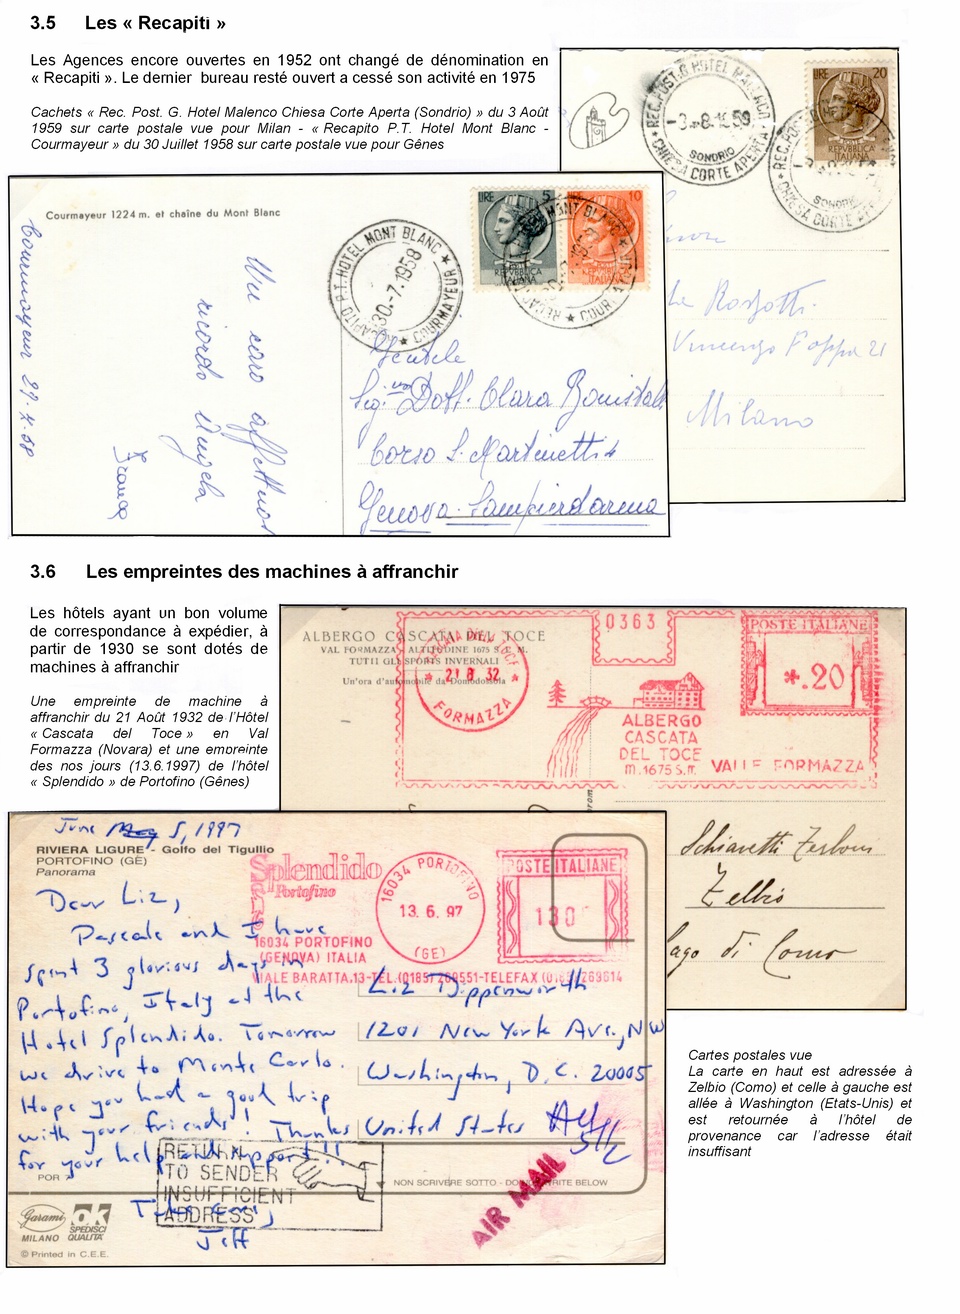 3.5 Les « Recapiti »
Les Agences encore ouvertes en 1952 ont changé de dénomination en
« Recapiti ». Le dernier bureau resté ouvert a cessé son activité en 1975
Cachets « Rec. Post. G. Hotel Malenco Chiesa Corte Aperta (Sondrio) » du 3 Août
1959 sur carte postale vue pour Milan - « Recapito P.T. Hotel Mont Blanc -
Courmayeur » du 30 Juillet 1958 sur carte postale vue pour Gênes
REC. POST. G. HOTEL MALENCO
-3.-8-1959
SONDRIO
* CHIESA CORTE APERTA *
LIRE 20
REPVBBLICA
ITALIANA
SONDRIO
Vincenzo Foppa 21
Milano
Courmayeur 1224 m. et chaîne du Mont Blanc
Courmayeur 29.7.58
Un caro affettuoso
ricordo Angela
Franco
RECAPITO P.T. HOTEL MONT BLANC
30.-7.1958
* COURMAYEUR *
LIRE 5
REPVBBLICA
ITALIANA
LIRE 10
Gentile
Dott. Clara
Corso S. Martinetti 4
Genova-Sampierdarena
3.6 Les empreintes des machines à affranchir
Les hôtels ayant un bon volume
de correspondance à expédier, à
partir de 1930 se sont dotés de
machines à affranchir
Une empreinte de machine à
affranchir du 21 Août 1932 de l'Hôtel
« Cascata del Toce » en Val
Formazza (Novara) et une empreinte
des nos jours (13.6.1997) de l'hôtel
« Splendido » de Portofino (Gênes)
ALBERGO CASCATA DEL TOCE
VAL FORMAZZA ALTITUDINE 1675 S. L. M.
TUTTI GLI SPORTS INVERNALI
Un'ora d'automobile da Domodossola
* 21 8 32 *
FORMAZZA
0363
POSTE ITALIANE
*.20
ALBERGO
CASCATA
DEL TOCE
m. 1675 S.m. VALLE FORMAZZA
Zelbio
Lago di Como
June May 5, 1997
RIVIERA LIGURE - Golfo del Tigullio
PORTOFINO (GE)
Panorama
Dear Liz,
Pascale and I have
spent 3 glorious days in
Portofino, Italy at the
Hotel Splendido. Tomorrow
we drive to Monte Carlo.
Hope you had a good trip
with your friends! Thanks
for your help and support!!
Jeff
Splendido
Portofino
16034 PORTOFINO
(GENOVA) ITALIA
VIALE BARATTA,13-TEL.(0185)269551-TELEFAX (0185)269614
16034 PORTOFINO
13. 6. 97
(GE)
POSTE ITALIANE
130
Liz Dippenworth
1201 New York Ave., NW
Washington, D.C. 20005
United States
RETURN
TO SENDER
INSUFFICIENT
ADDRESS
AIR MAIL
POR
NON SCRIVERE SOTTO - DO NOT WRITE BELOW
Garami
MILANO
OK
SPEDISCI
QUALITÀ
© Printed in C.E.E.
Cartes postales vue
La carte en haut est adressée à
Zelbio (Como) et celle à gauche est
allée à Washington (Etats-Unis) et
est retournée à l'hôtel de
provenance car l'adresse était
insuffisant